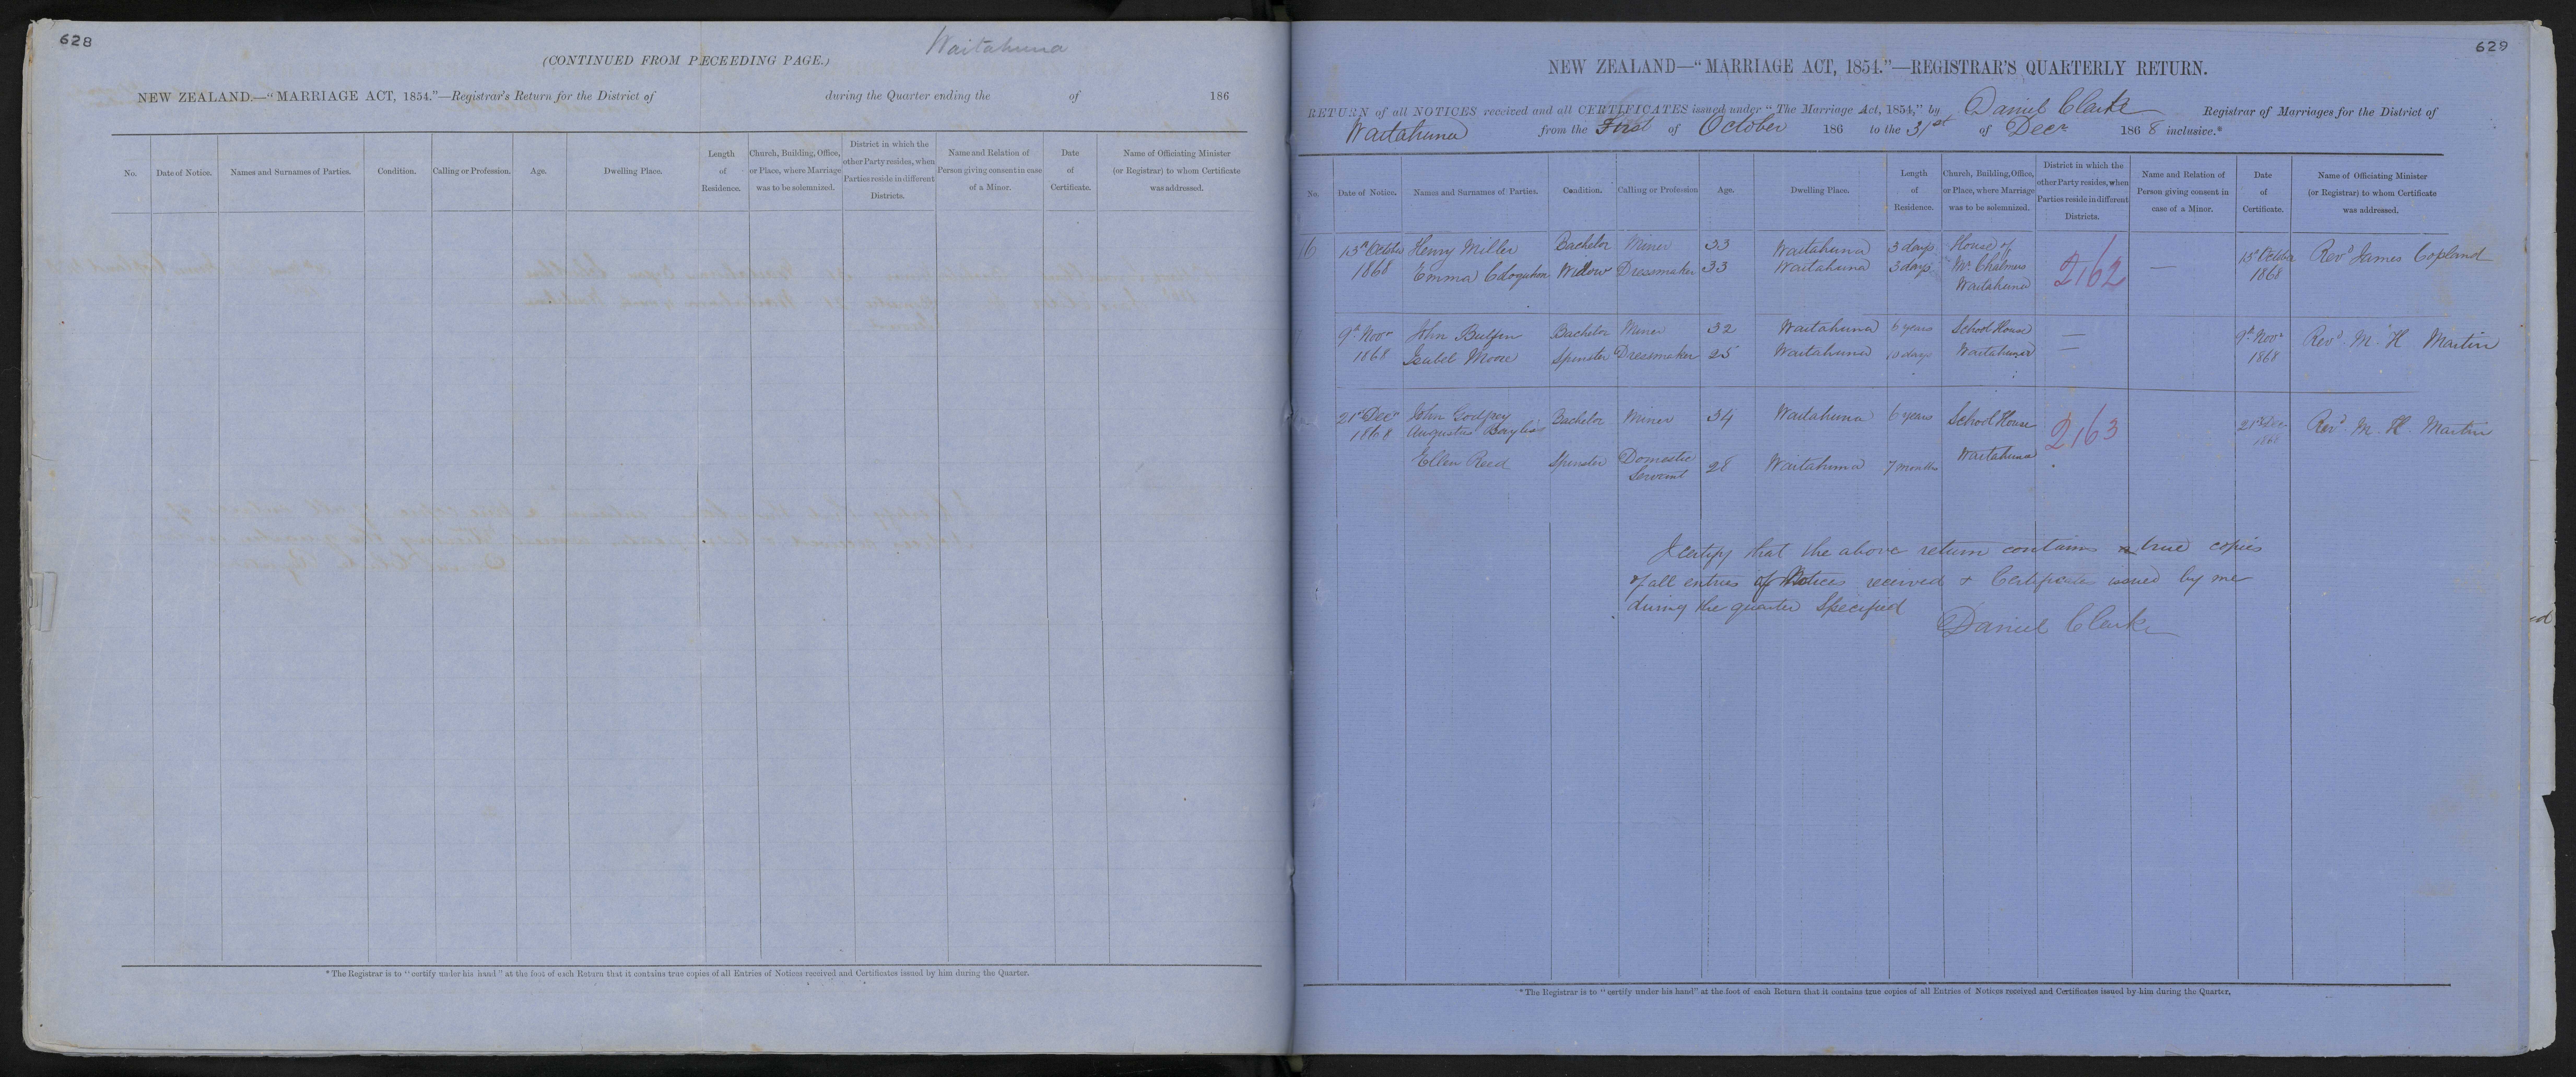 628
Waitahuna
(CONTINUED FROM PECEEDING PAGE.)
NEW ZEALAND.—"MARRIAGE ACT, 1854."—Registrar's Return for the District of during the Quarter ending the of 186
No.
Date of Notice.
Names and Surnames of Parties.
Condition.
Calling or Profession.
Age.
Dwelling Place.
Length
of
Residence.
Church, Building, Office,
or Place, where Marriage
was to be solemnized.
District in which the
other Party resides, when
Parties reside in different
Districts.
Name and Relation of
Person giving consent in case
of a Minor.
Date
of
Certificate.
Name of Officiating Minister
(or Registrar) to whom Certificate
was addressed.
* The Registrar is to "certify under his hand" at the foot of each Return that it contains true copies of all Entries of Notices received and Certificates issued by him during the Quarter.
629
NEW ZEALAND—"MARRIAGE ACT, 1854."—REGISTRAR'S QUARTERLY RETURN.
RETURN of all NOTICES received and all CERTIFICATES issued under "The Marriage Act, 1854," by Daniel Clarke Registrar of Marriages for the District of
Waitahuna from the First of October 186 to the 31st of Decr 1868 inclusive.*
No.
Date of Notice.
Names and Surnames of Parties.
Condition.
Calling or Profession
Age.
Dwelling Place.
Length
of
Residence.
Church, Building, Office,
or Place, where Marriage
was to be solemnized.
District in which the
other Party resides, when
Parties reside in different
Districts.
Name and Relation of
Person giving consent in
case of a Minor.
Date
of
Certificate.
Name of Officiating Minister
(or Registrar) to whom Certificate
was addressed.
16 13th October Henry Miller Bachelor Miner 33 Waitahuna 3 days House of 13th October Revd James Copland
1868 Emma Widow Dressmaker 33 Waitahuna 3 days Mr. Chalmers 2,162 — 1868
Waitahuna
9th Novr John Bulfin Bachelor Miner 32 Waitahuna 6 years School House — 9th Novr Revd M. H. Martin
1868 Isabel Moore Spinster Dressmaker 25 Waitahuna 10 days Waitahuna — 1868
21st Decr John Godfrey Bachelor Miner 34 Waitahuna 6 years School House 2,163 21st Decr Revd M. H. Martin
1868 Augustus Bayliss 1868
Ellen Reed Spinster Domestic 28 Waitahuna 7 months Waitahuna
Servant
I certify that the above return contains true copies
of all entries of Notices received & Certificates issued by me
during the quarter Specified
Daniel Clarke
* The Registrar is to "certify under his hand" at the foot of each Return that it contains true copies of all Entries of Notices received and Certificates issued by him during the Quarter.